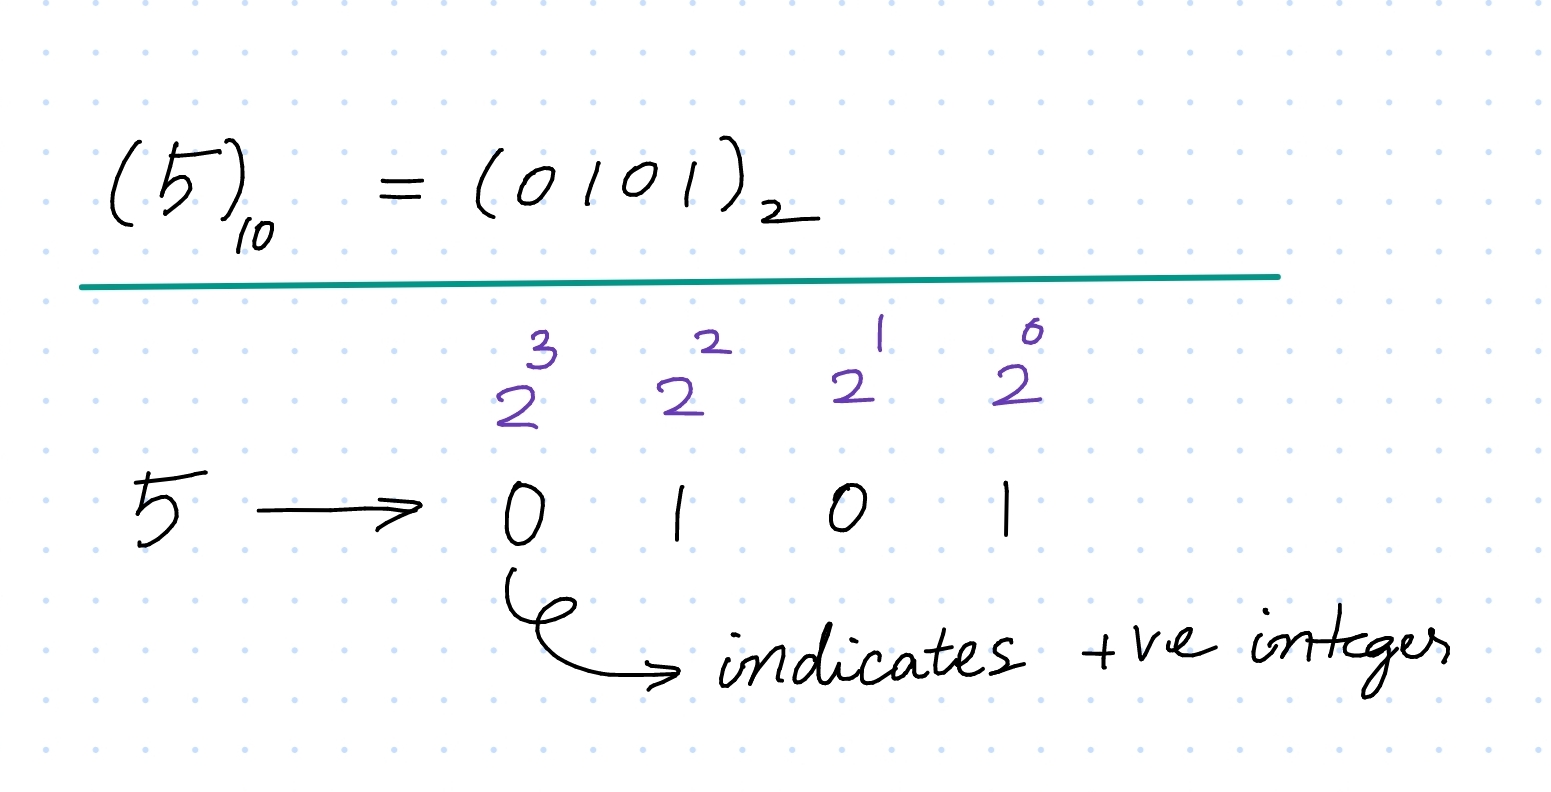 (5)₁₀ = (0101)₂
2³ 2² 2¹ 2⁰
5 → 0 1 0 1
→ indicates +ve integer